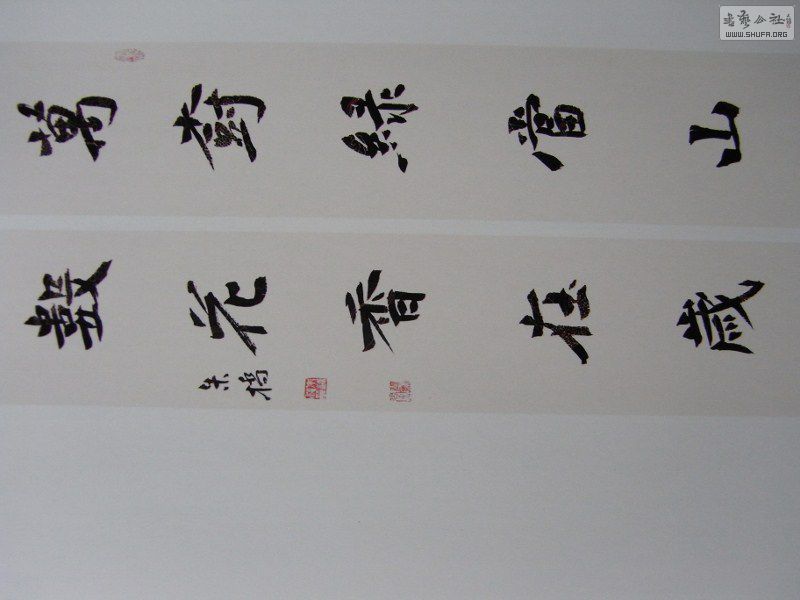 萬樹綠當山
數花香在歲
朱橋
書藝公社
WWW.SHUFA.ORG